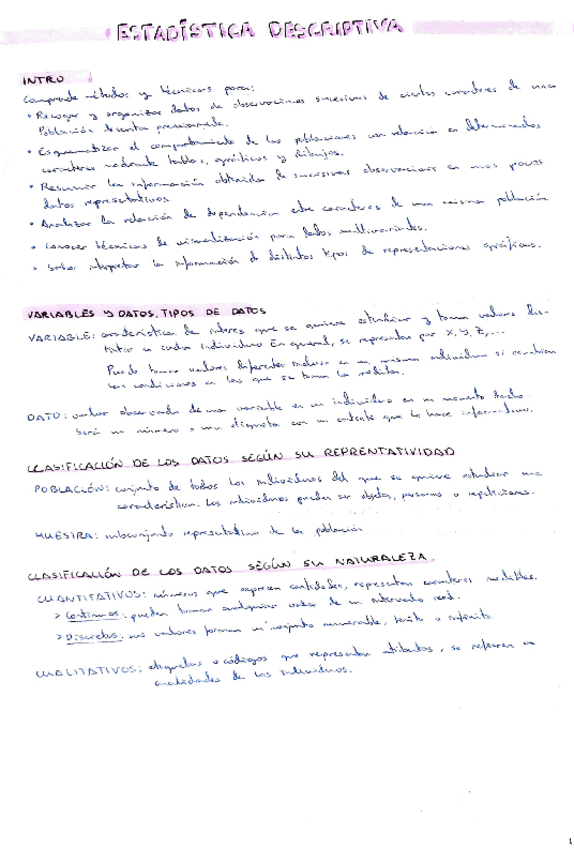 ESTADÍSTICA DESCRIPTIVA
INTRO
Comprende métodos y técnicas para:
• Recoger y organizar datos de observaciones sucesivas de ciertos caracteres de una
Población descrita previamente.
• Esquematizar el comportamiento de las poblaciones con relación a determinados
caracteres mediante tablas, gráficos y dibujos.
• Resumir la información obtenida de sucesivas observaciones en unos pocos
datos representativos.
• Analizar la relación de dependencia entre caracteres de una misma población
• Conocer técnicas de visualización para datos multivariantes.
• Saber interpretar la información de distintos tipos de representaciones gráficas.
VARIABLES Y DATOS. TIPOS DE DATOS
VARIABLE: característica de interés que se quiere estudiar y toma valores dis-
tintos en cada individuo En general, se representan por X, Y, Z, ...
Puede tomar valores diferentes incluso en un mismo individuo si cambian
las condiciones en las que se toman las medidas.
DATO: valor observado de una variable en un individuo en un momento dado.
Será un número o una etiqueta con un contexto que lo hace informativo.
CLASIFICACIÓN DE LOS DATOS SEGÚN SU REPRENTATIVIDAD
POBLACIÓN: conjunto de todos los individuos del que se quiere estudiar una
característica. Los individuos pueden ser objetos, personas o repeticiones.
MUESTRA: subconjunto representativo de la población
CLASIFICACIÓN DE LOS DATOS SEGÚN SU NATURALEZA
CUANTITATIVOS: números que expresan cantidades, representan caracteres medibles.
> Continuos: pueden tomar cualquier valor de un intervalo real.
> Discretos: sus valores forman un conjunto numerable, finito o infinito.
CUALITATIVOS: etiquetas o códigos que representan atributos, se refieren a
cualidades de los individuos.
1